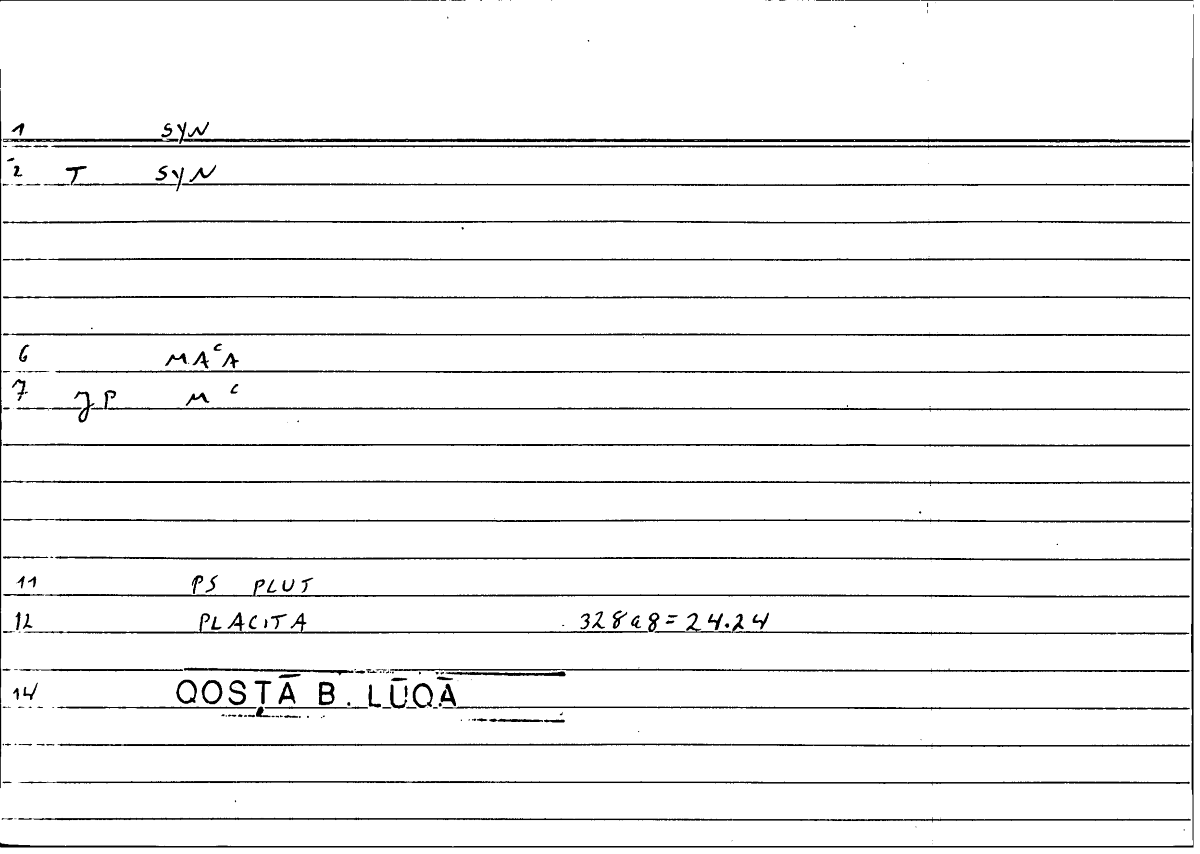 1 SYN
2 T SYN
6 MAᶜA
7 JP M ᶜ
11 PS PLUT
12 PLACITA 328a8=24.24
14 QOSṬĀ B. LŪQĀ